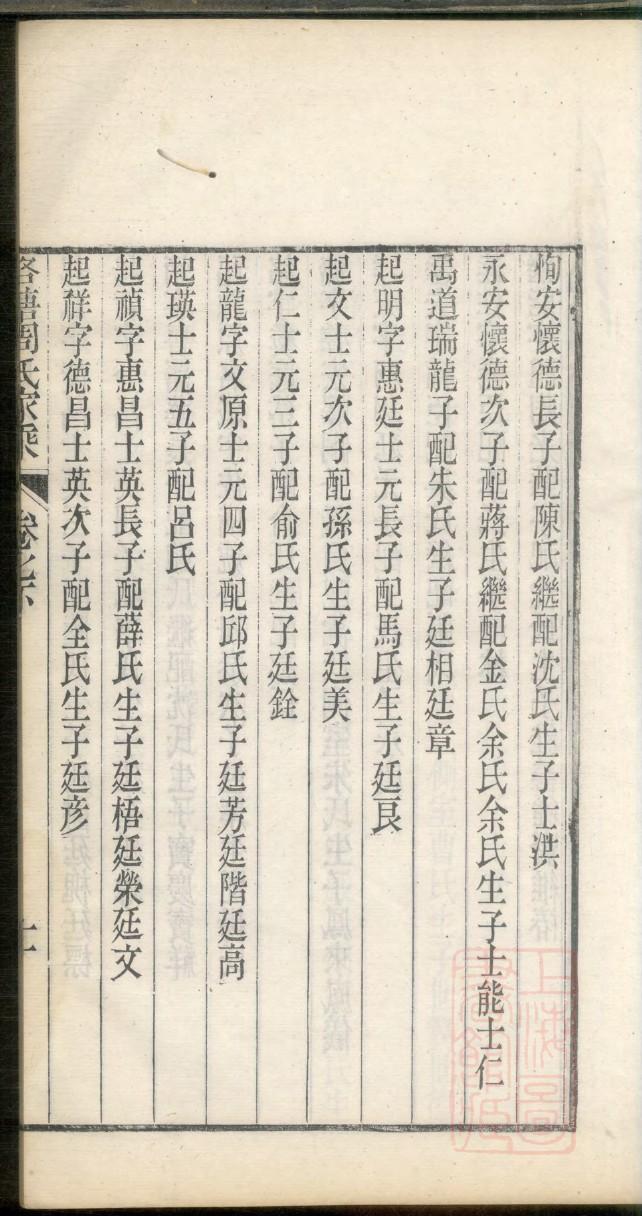 恂安懷德長子配陳氏繼配沈氏生子士洪
永安懷德次子配蔣氏繼配金氏余氏余氏生子士能士仁
禹道瑞龍子配朱氏生子廷相廷章
起明字惠廷士元長子配馬氏生子廷良
起文士元次子配孫氏生子廷美
起仁士元三子配俞氏生子廷銓
起龍字文原士元四子配邱氏生子廷芳廷階廷高
起瑛士元五子配呂氏
起禎字惠昌士英長子配薛氏生子廷梧廷榮廷文
起祥字德昌士英次子配全氏生子廷彥
塘周氏家乘 卷之下
上海圖書館藏